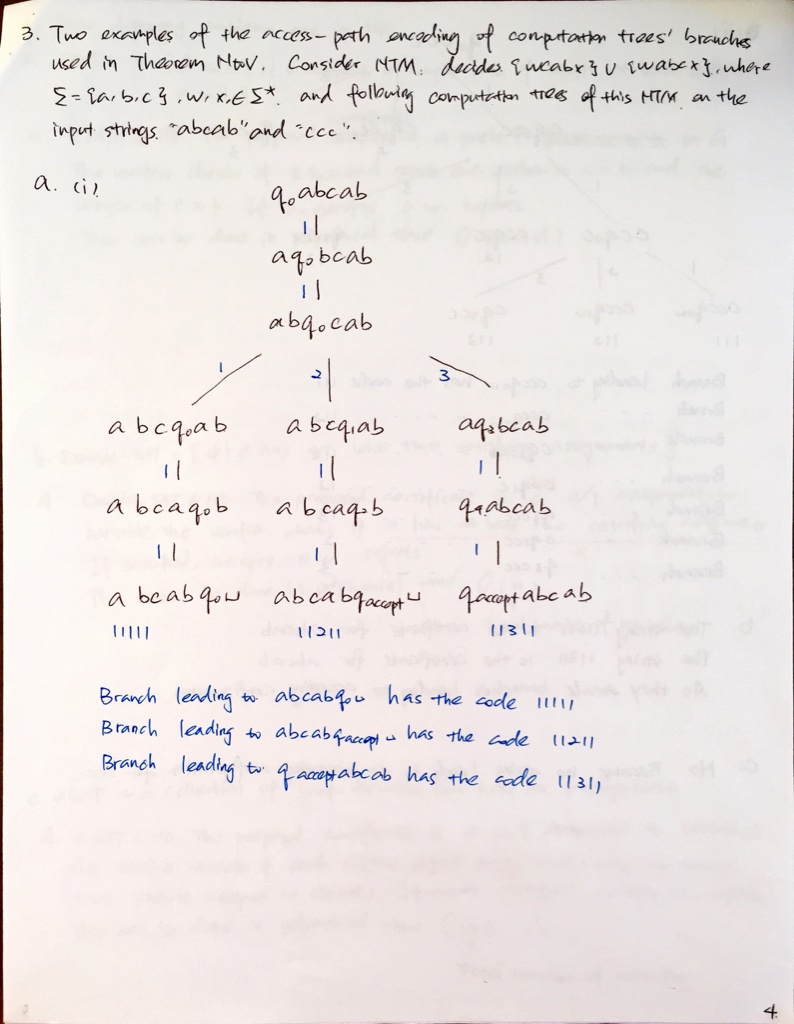 3. Two examples of the access-path encoding of computation trees' branches
used in Theorem NtoV. Consider NTM. decides {wcabx} ∪ {wabcx}, where
Σ = {a, b, c}, w, x, ∈ Σ*. and following computation trees of this NTM on the
input strings. "abcab" and "ccc".
a. (i)
q₀abcab
1
aq₀bcab
1
abq₀cab
1 2 3
abcq₀ab abcq₁ab aq₃bcab
1 1 1
abcaq₀b abcaq₂b q₄abcab
1 1 1
abcabq₀⊔ abcabq_accept⊔ q_acceptabcab
11111 11211 11311
Branch leading to abcabq₀⊔ has the code 11111
Branch leading to abcabq_accept⊔ has the code 11211
Branch leading to q_acceptabcab has the code 11311
4